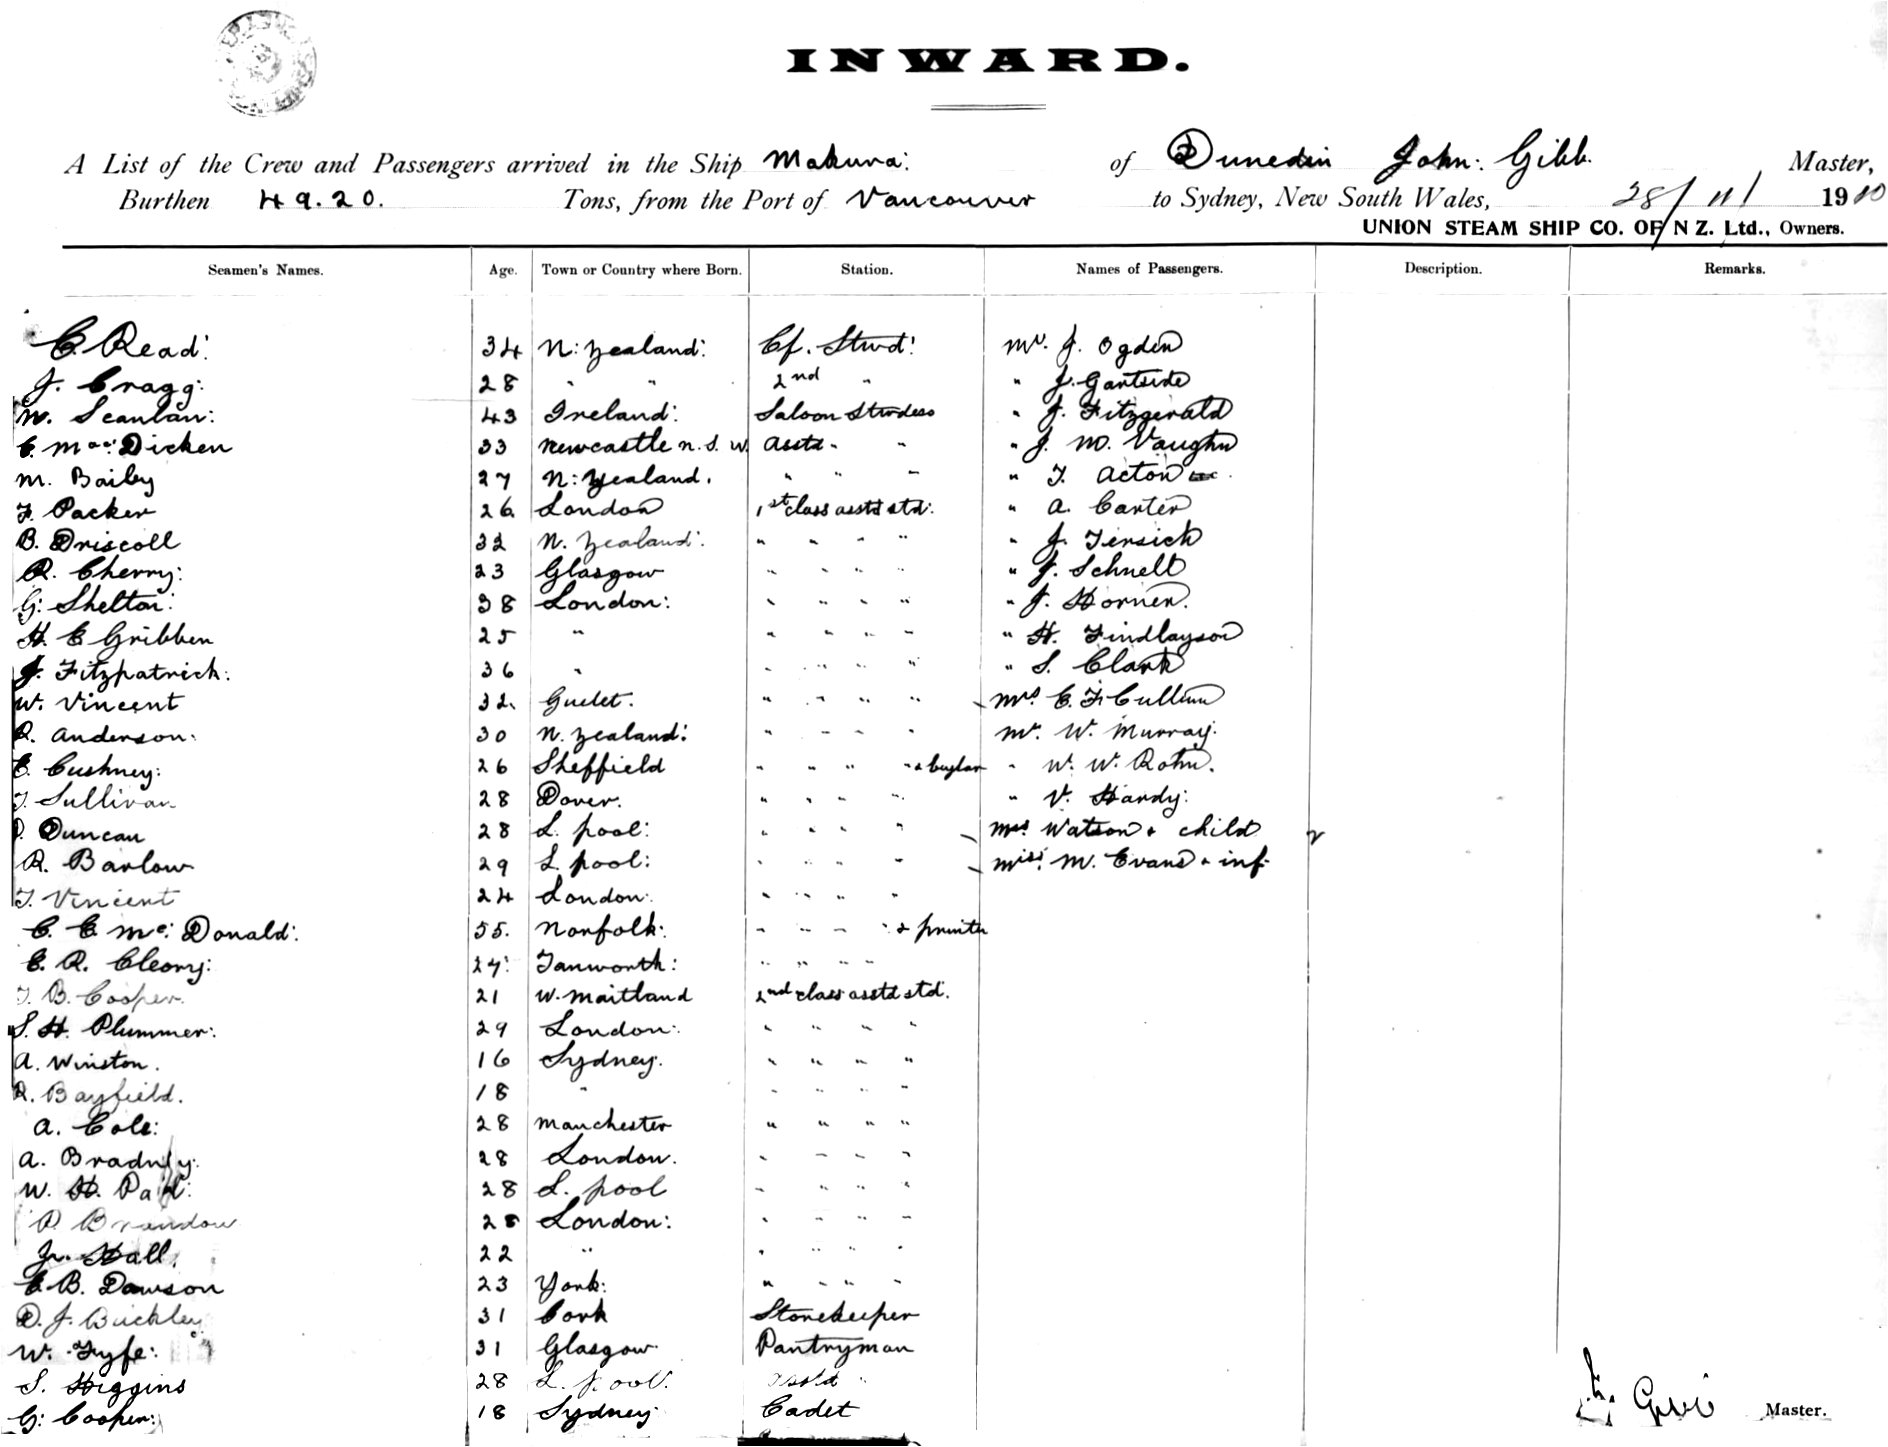 INWARD.
A List of the Crew and Passengers arrived in the Ship Makura: of Dunedin John: Gibb. Master,
Burthen 49.20. Tons, from the Port of Vancouver to Sydney, New South Wales, 28/11/1910
UNION STEAM SHIP CO. OF N Z. Ltd., Owners.
Seamen's Names. Age. Town or Country where Born. Station. Names of Passengers. Description. Remarks.
C. Read: 34 N: Zealand: Cf. Stwd: Mr. J. Ogden
J. Cragg: 28 " " 2nd " " J. Gartside
W. Scanlan: 43 Ireland: Saloon Stwdess " J. Fitzgerald
C. Mac: Dicken 33 Newcastle N. S. W. Asstd " " " J. M. Vaughn
M. Baily 27 N: Zealand. " " " " T. Acton
F. Packer 26. London 1st class asstd std: " A. Carter
B. Driscoll 32 N. Zealand: " " " " " J. Tersick
R. Cherry: 23 Glasgow " " " " " J. Schnell
G: Shelton: 38 London: " " " " " J. Horner.
H. E Gribben 25 " " " " " " H. Findlayson
J. Fitzpatrick: 36 " " " " " " S. Clark
W. Vincent 32. " " " " Mrs C. F. Cullum
R. Anderson: 30 N. Zealand: " " " " Mr. W. Murray:
E. Cushney: 26 Sheffield " " " " & buglar " W. W. Rohn.
T. Sullivan 28 Dover. " " " " " V. Hardy:
Duncan 28 L. pool: " " " " Mrs Watson & child 2
R. Barlow 29 L. pool: " " " " Miss. M. Evans & inf
T. Vincent 24 London: " " " "
C. C. Mc: Donald: 55. Norfolk: " " " " & printer
E. R. Cleary: 27: Tanworth: " " " "
T. B. Cooper. 21 W. Maitland 2nd class asstd std.
S. H. Plummer: 29 London: " " " "
A. Winston. 16 Sydney. " " " "
R. Bayfield. 18 " " " " "
A. Cole: 28 Manchester " " " "
A. 28 London. " " " "
W. H. 28 L. pool " " " "
28 London: " " " "
Hall. 22 " " " " "
E. B. Dawson 23 York: " " " "
D. J. Buckley 31 Cork Storekeeper
W. Fyfe: 31 Glasgow Pantryman
S. Higgins 28 L. pool. asstd "
G: Cooper: 18 Sydney Cadet
Master.